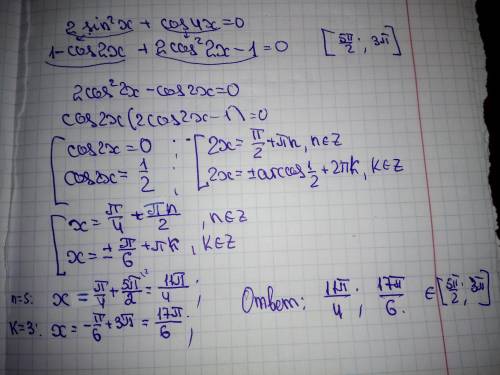 2 sin²x + cos4x = 0
1 - cos2x + 2cos²2x - 1 = 0 [5π/2; 3π]
2cos²2x - cos2x = 0
cos2x(2cos2x - 1) = 0
[cos2x = 0 ; [2x = π/2 + πn, n∈Z
cos2x = 1/2 ; 2x = ± arccos 1/2 + 2πk, k∈Z
[x = π/4 + πn/2, n∈Z
x = ± π/6 + πk, k∈Z
n=5: x = π/4 + 5π/2 \2 = 11π/4 ;
k=3: x = -π/6 + 3π = 17π/6 ;
Ответ: 11π/4 ; 17π/6 ∈ [5π/2; 3π]